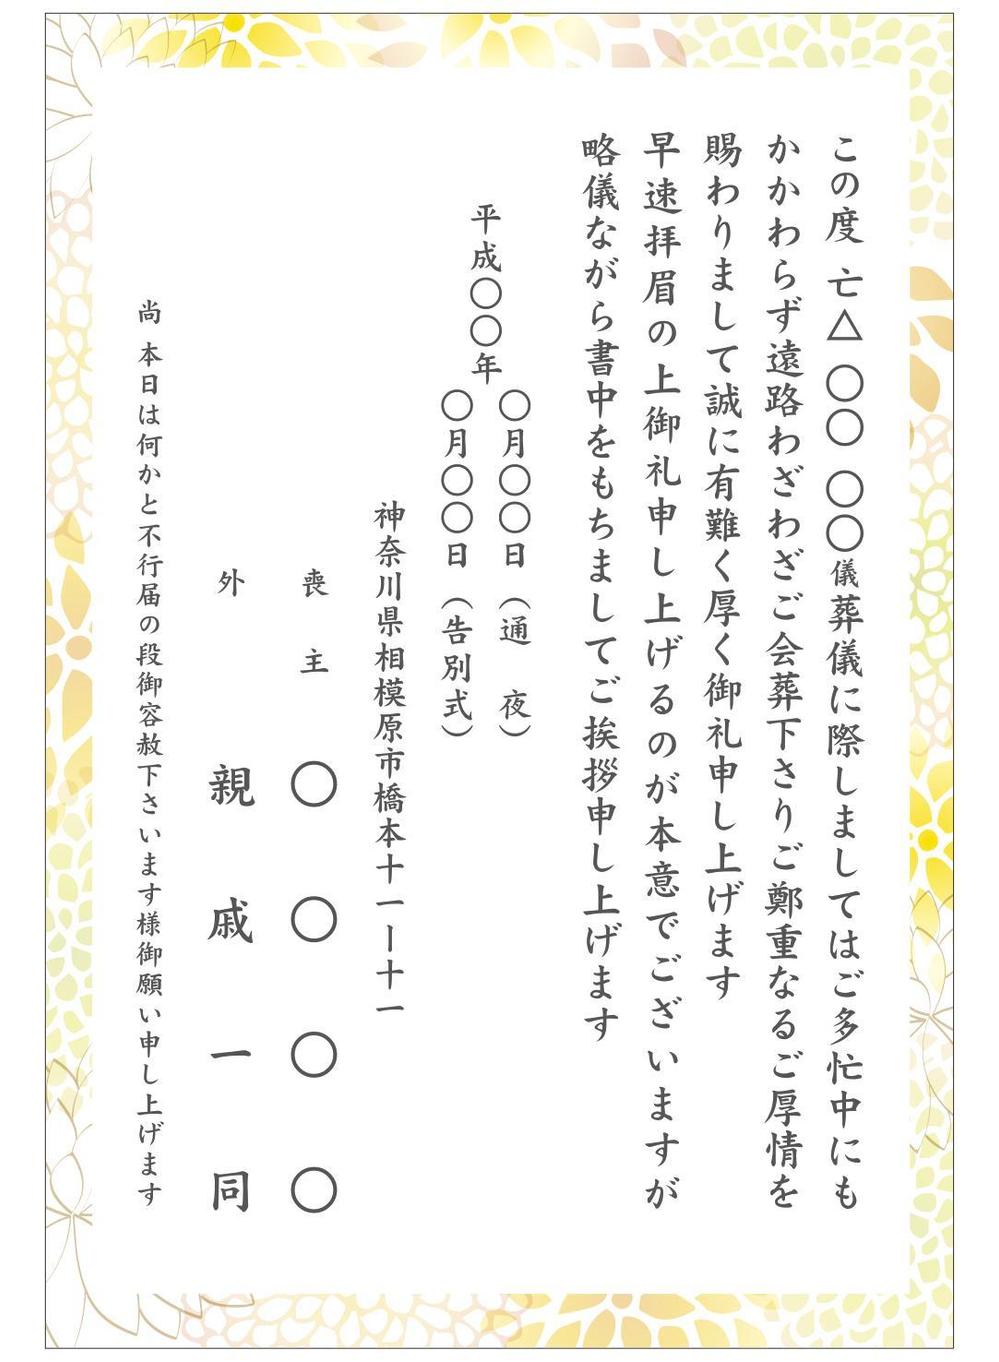 この度 亡△ 〇〇 〇〇儀葬儀に際しましてはご多忙中にも
かかわらず遠路わざわざご会葬下さりご鄭重なるご厚情を
賜わりまして誠に有難く厚く御礼申し上げます
早速拝眉の上御礼申し上げるのが本意でございますが
略儀ながら書中をもちましてご挨拶申し上げます
平成〇〇年
〇月〇〇日（通 夜）
〇月〇〇日（告別式）
神奈川県相模原市橋本十一ー十一
喪 主 〇 〇 〇 〇
外 親 戚 一 同
尚 本日は何かと不行届の段御容赦下さいます様御願い申し上げます